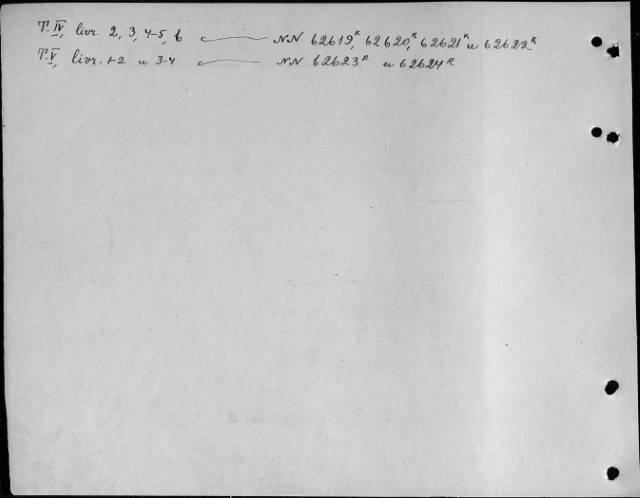 T. IV, livr. 2, 3, 4-5, 6 —— NN 62619ᴿ, 62620ᴿ, 62621ᴿ и 62622ᴿ
T. V, livr. 1-2 и 3-4 —— NN 62623ᴿ и 62624ᴿ